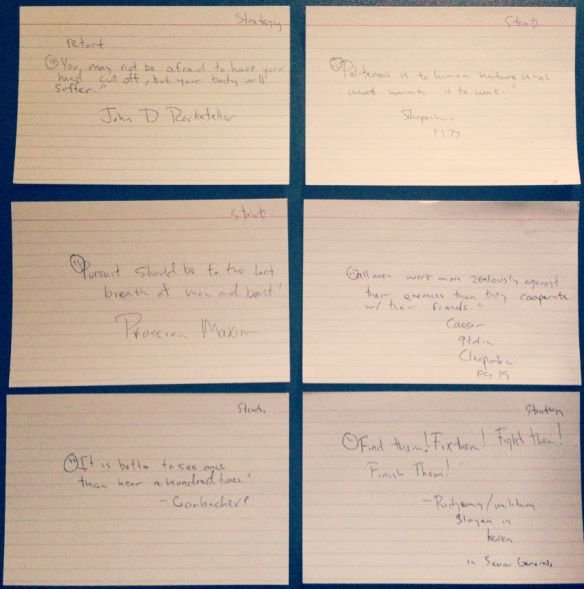 Strategy
retort
"You, may not be afraid to have your
hand cut off, but your body will
suffer."
John D Rockefeller
Strat
"Politeness is to human nature what
what warmth is to wax."
Strat
"Pursuit should be to the last
breath of man and beast"
Prussian Maxim
"all men work more zealously against
their enemies than they cooperate
w/ their friends."
Caesar
qtd in
Cleopatra
pg 19
Strat
"It is better to see once
than hear a hundred times"
- Gorbachev
Strategy
"Find them! Fix them! Fight them!
Finish Them!"
- Ridgway/military
slogan in
korea
in Savior Generals